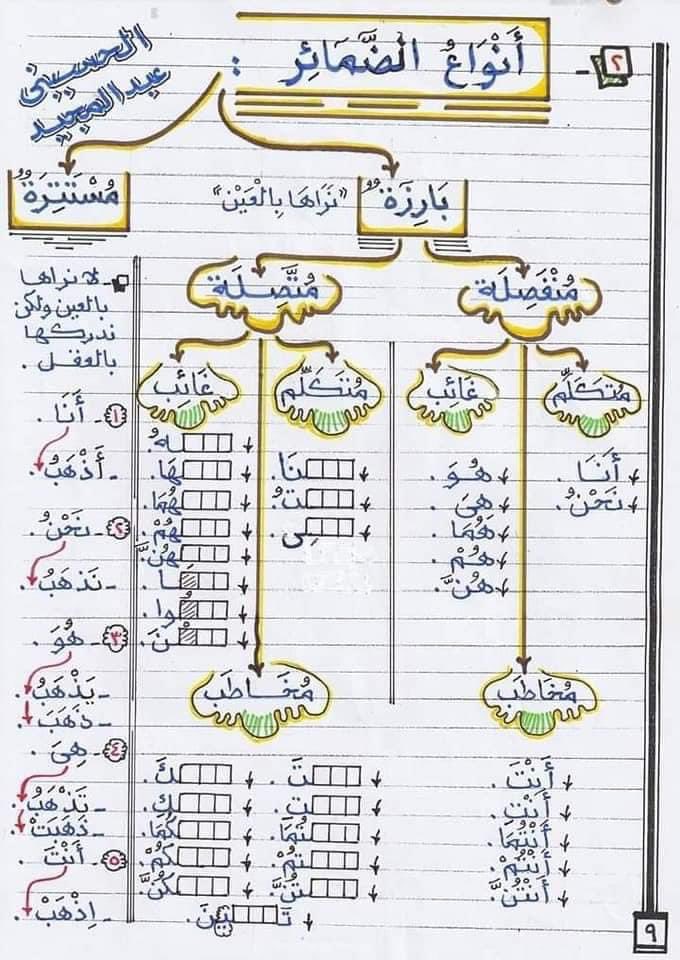 ٢ - أَنْوَاعُ الضَّمَائِر :
الحسيني
عبدالمجيد
بَارِزَةٌ "نَرَاهَا بِالْعَيْنِ"
مُسْتَتِرَةٌ
مُنْفَصِلَة
مُتَّصِلَة
مُتَكَلِّم
أَنَا.
نَحْنُ.
غَائِب
هُوَ.
هِىَ.
هُمَا.
هُمْ.
هُنَّ.
مُخَاطَب
أَنْتَ.
أَنْتِ.
أَنْتُمَا.
أَنْتُمْ.
أَنْتُنَّ.
مُتَكَلِّم
ـنَا.
ـتُ.
ـِى.
غَائِب
ـهُ.
ـهَا.
ـهُمَا.
ـهُمْ.
ـهُنَّ.
ـَا.
ـُوا.
ـْنَ.
مُخَاطَب
ـتَ.
ـتِ.
ـتُمَا.
ـتُمْ.
ـتُنَّ.
ـكَ.
ـكِ.
ـكُمَا.
ـكُمْ.
ـكُنَّ.
تَـ ـِينَ.
- لا نراها
بالعين ولكن
ندركها
بالعقل.
١- أَنَا.
أَذْهَبُ.
٢- نَحْنُ.
نَذهَبُ.
٣- هُوَ.
- يَذْهَبُ.
- ذَهَبَ.
٤- هِىَ.
- تَذْهَبُ.
- ذَهَبَتْ.
٥- أَنْتَ.
اِذْهَبْ.
٩